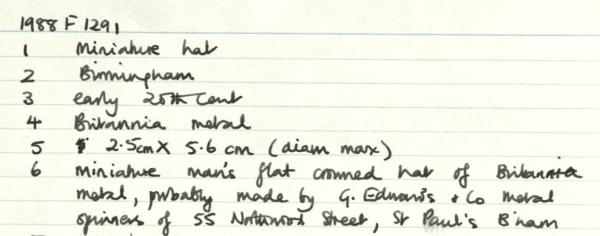 1988 F 1291
1 Miniature hat
2 Birmingham
3 early 20th Cent
4 Britannia metal
5 2.5cm X 5.6 cm (diam max)
6 miniature man's flat crowned hat of Britannia
metal, probably made by G. Edwards & Co metal
spinners of 55 Northwood Street, St Paul's B'ham